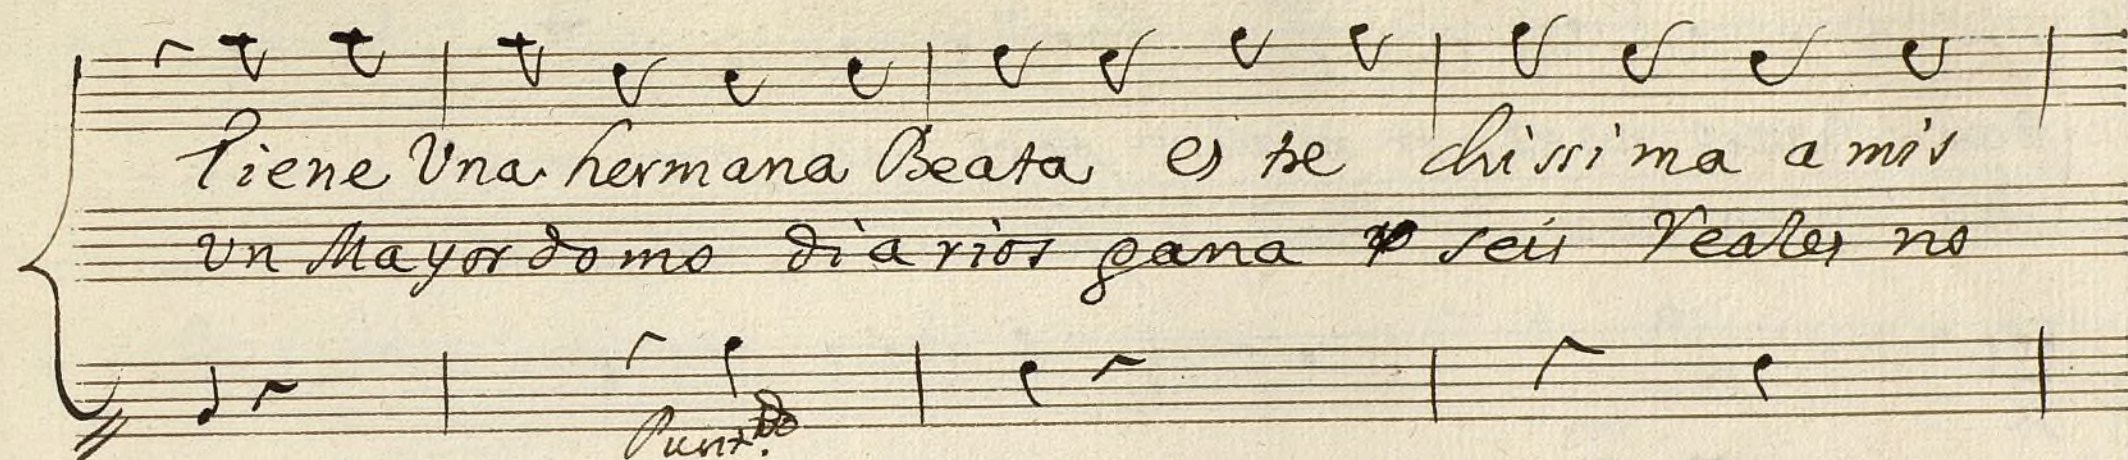 Tiene Una hermana Beata es tre chissima amis
Un Mayordomo diarios gana seis Reales no
Punt.do